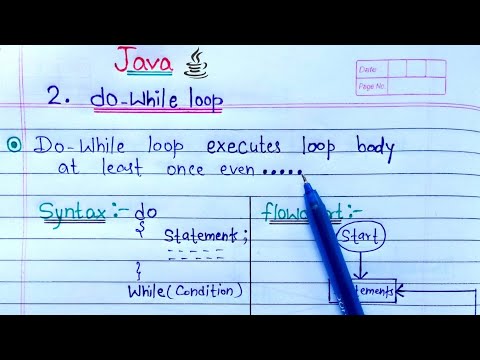 Java
Date
Page No.
2. do-While loop
Do-While loop executes loop body
at least once even .....
Syntax:- do
{
Statements;
}
While(Condition)
:-
Start